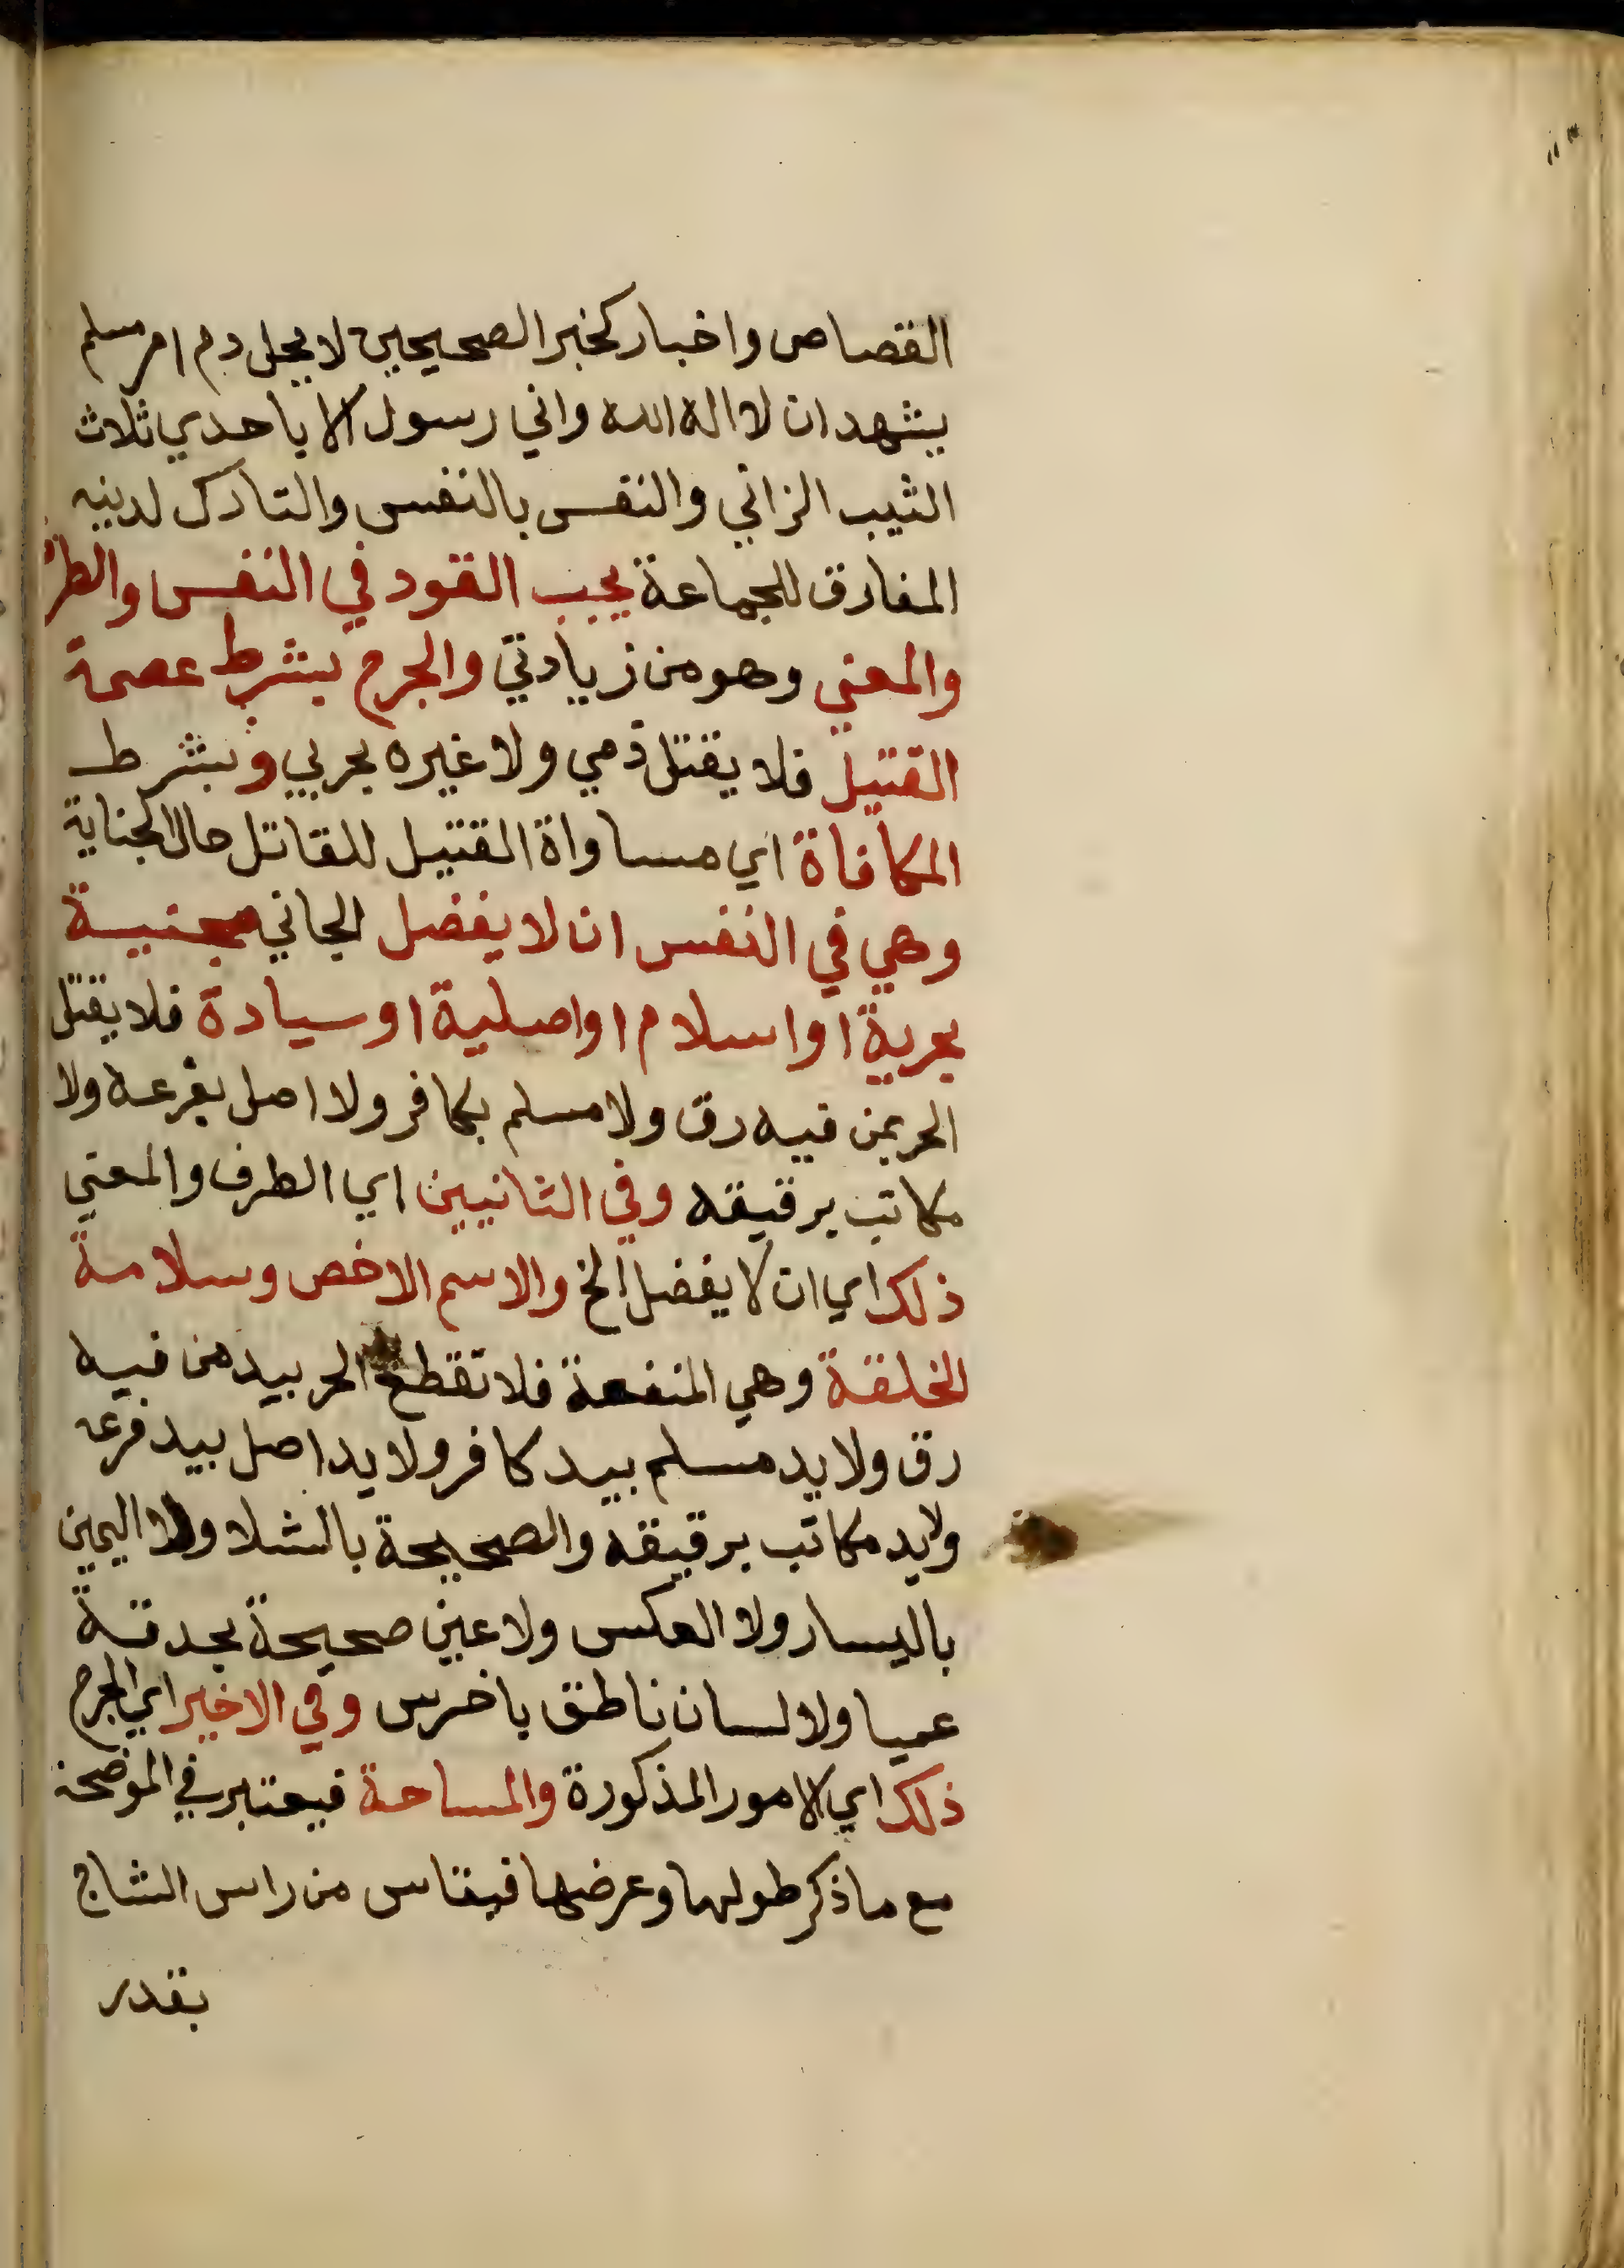 القصاص واخبار كخبر الصحيحين لا يحل دم امر مسلم
يشهد ان لا اله الله واني رسول الا باحدي ثلاث
الثيب الزاني والنفس بالنفس والتارك لدينه
المفارق للجماعة يجب القود في النفس والطر
والمعني وهو من زيادتي والجرح بشرط عصمة
القتيل فلا يقتل ذمي ولا غيره بحربي وبشرط
المكافاة اي مساواة القتيل للقاتل حال الجناية
وهي في النفس ان لا يفضل الجاني مجنيه
بحرية او اسلام او اصلية او سيادة فلا يقتل
الحر بمن فيه رق ولا مسلم بكافر ولا اصل بفرعه ولا
مكاتب برقيقه وفي الثانيين اي الطرف والمعني
ذلك اي ان لا يفضل الخ والاسم الاخص وسلامة
الخلقة وهي المنفعة فلا تقطع الحر بيد من فيه
رق ولا يد مسلم بيد كافر ولا يد اصل بيد فرعه
ولا يد مكاتب برقيقه والصحيحة بالشلا ولا اليمين
باليسار ولا العكس ولا عين صحيحة بحدقة
عميا ولا لسان ناطق باخرس وفي الاخير اي الجرح
ذلك اي الامور المذكورة والمساحة فيعتبر في الموضحة
مع ما ذكر طولها وعرضها فيقاس من راس الشاج
بقدر